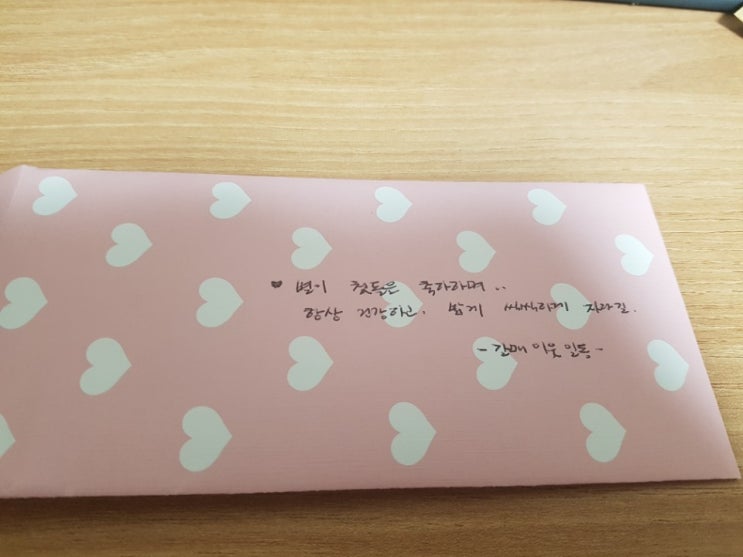 ♥ 별이 첫돌은 축하하며..
항상 건강하고. 밝게 쌕쌕하게 자라길.
- 갈매 이웃 일동 -